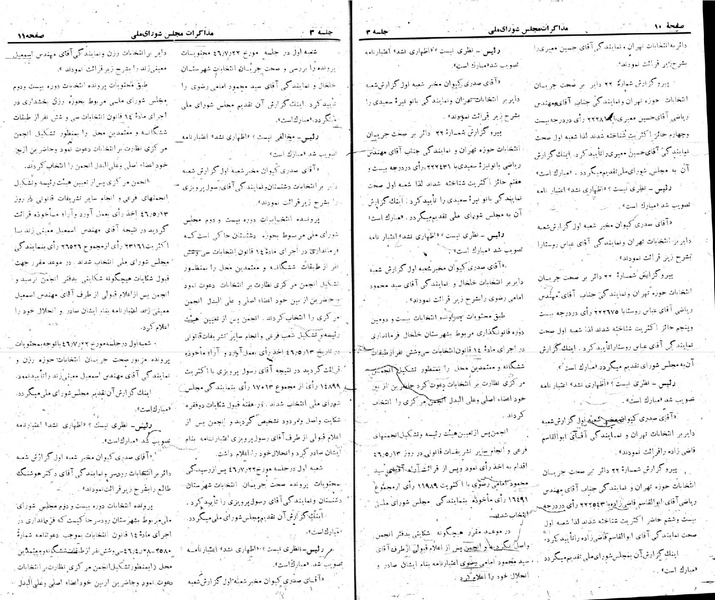 صفحهٔ ۱۰ مذاکرات مجلس شورای ملی جلسه ۳
دائر به انتخابات تهران و نمایندگی آقای حسین معیری را
بشرح زیر قرائت نمودند
پیرو گزارش شمارهٔ ۲۲ دائر بر صحت جریان
انتخابات حوزه تهران و نمایندگی جناب آقای مهندس
شناخته شدند لذا شعبه اول صحت
نمایندگی آقای حسین معیری را تأیید کرد. اینک گزارش
آن به مجلس شورای ملی تقدیم میگردد.
رئیس - نظری نیست «اظهاری نشد» اعتبار نامه
تصویب شد مبارک است.
«آقای صدری کیوان مخبر شعبه اول گزارش شعبه
دایر بر انتخابات تهران و نمایندگی آقای عباس روستا را
بشرح زیر قرائت نمودند»
پیرو گزارش شمارهٔ ۲۲ دائر بر صحت جریان
انتخابات حوزه تهران و نمایندگی جناب آقای مهندس
ریاضی آقای عباس روستا با ۲۲۲۶۷۵ رأی در درجه بیست
وپنجم حائز اکثریت شناخته شدند لذا شعبه اول صحت
نمایندگی آقای عباس روستا را تأیید کرد. اینک گزارش
آن به مجلس شورای ملی تقدیم میگردد.
رئیس - نظری نیست «اظهاری نشد» اعتبار نامه
تصویب شد مبارک است.
«آقای صدری کیوان مخبر شعبه اول گزارش شعبه
دایر بر انتخابات تهران و نمایندگی آقای ابوالقاسم
قاضی زاده را قرائت نمودند»
پیرو گزارش شمارهٔ ۲۲ دائر بر صحت جریان
انتخابات حوزه تهران و نمایندگی جناب آقای مهندس
ریاضی آقای ابوالقاسم قاضی زاده با ۲۲۲۵۴۳ رأی در درجه
بیست و ششم حائز اکثریت شناخته شدند لذا شعبه اول
صحت نمایندگی آقای ابوالقاسم قاضی زاده را تأیید کرد
اینک گزارش آن به مجلس شورای ملی تقدیم میگردد
مبارک است.
رئیس - نظری نیست «اظهاری نشد» اعتبار نامه
تصویب شد مبارک است.
«آقای صدری کیوان مخبر شعبه اول گزارش شعبه
دایر بر انتخابات تهران و نمایندگی بانو نیره سعیدی را
بشرح زیر قرائت نمودند»
پیرو گزارش شمارهٔ ۲۲ دائر بر صحت جریان
انتخابات حوزه تهران و نمایندگی جناب آقای مهندس
ریاضی بانو نیره سعیدی با ۲۲۷۴۳۱ رأی در درجه بیست و
هفتم حائز اکثریت شناخته شدند لذا شعبه اول صحت
نمایندگی بانو نیره سعیدی را تأیید کرد. اینک گزارش
آن به مجلس شورای ملی تقدیم میگردد.
رئیس - نظری نیست «اظهاری نشد» اعتبار نامه
تصویب شد مبارک است.
«آقای صدری کیوان مخبر شعبه اول گزارش شعبه
دایر بر انتخابات خلخال و نمایندگی آقای سید محمود
امامی رضوی را بشرح زیر قرائت نمودند»
طبق محتویات پرونده انتخابات بیست و دومین
دوره قانونگذاری مربوط بشهرستان خلخال فرمانداری
در اجرای مادهٔ ۱۴ قانون انتخابات سی وشش نفر از طبقات
ششگانه و معتمدین محل را بمنظور تشکیل انجمن
مرکزی نظارت بر انتخابات دعوت کرد و حاضرین از بین
خود اعضاء اصلی وعلی البدل انجمن مرکزی را انتخاب
کردند
انجمن پس از تعیین هیئت رئیسه وتشکیل انجمنهای
فرعی و انجام سایر تشریفات قانونی در روز ۴۶/۵/۱۳
اقدام به اخذ رأی نمود و پس از قرائت آراء آقای سید
محمود امامی رضوی با اکثریت ۱۱۹۸۹ رأی از مجموع
۱۶۴۹۱ رأی مأخوذه بنمایندگی مجلس شورای ملی
انتخاب شدند.
در موعد مقرر هیچگونه شکایتی بدفتر انجمن
واصل نگردید و انجمن پس از اعلام قبولی از طرف آقای
سید محمود امامی رضوی اعتبارنامه بنام ایشان صادر و
انحلال خود را اعلام کرد.
جلسه ۳ مذاکرات مجلس شورای ملی صفحه ۱۱
شعبه اول در جلسه مورخ ۴۶/۷/۲۲ محتویات
پرونده را بررسی و صحت جریان انتخابات شهرستان
خلخال و نمایندگی آقای سید محمود امامی رضوی را
تأیید کرد. اینک گزارش آن تقدیم مجلس شورای ملی
میگردد مبارک است.
رئیس - مخالفی نیست «اظهاری نشد» اعتبارنامه
تصویب شد مبارک است.
«آقای صدری کیوان مخبر شعبه اول گزارش شعبه
دایر بر انتخابات دشتستان و نمایندگی آقای رسول پرویزی
را بشرح زیر قرائت نمودند»
پرونده انتخابات دوره بیست و دوم مجلس
شورای ملی مربوط بحوزه دشتستان حاکی است که
فرمانداری در اجرای مادهٔ ۱۴ قانون انتخابات سی وشش
نفر از طبقات ششگانه و معتمدین محل را بمنظور
تشکیل انجمن مرکزی نظارت بر انتخابات دعوت نمود
و حاضرین از بین خود اعضاء اصلی و علی البدل انجمن
مرکزی را انتخاب کردند. انجمن پس از تعیین هیئت
رئیسه و تشکیل شعب فرعی و انجام سایر تشریفات قانونی
در تاریخ ۴۶/۵/۱۳ اخذ رأی بعمل آورد و آراء مأخوذه
قرائت گردید در نتیجه آقای رسول پرویزی با اکثریت
۱۴۸۹۹ رأی از مجموع ۱۷۰۱۳ رأی بنمایندگی مجلس
شورای ملی انتخاب شدند. در هفته قبول شکایات دو فقره
شکایت واصل ومردود تشخیص گردید و انجمن پس از
اعلام قبولی از طرف آقای رسول پرویزی اعتبارنامه بنام
ایشان صادر کرد و انحلال خود را اعلام داشت.
شعبه اول در جلسه مورخ ۴۶/۷/۲۲ پس از رسیدگی
بمحتویات پرونده صحت جریان انتخابات شهرستان
دشتستان و نمایندگی آقای رسول پرویزی را تأیید کرد.
اینک گزارش آن تقدیم مجلس شورای ملی میگردد
مبارک است.
رئیس - نظری نیست «اظهاری نشد» اعتبارنامه
تصویب شد مبارک است.
«آقای صدری کیوان مخبر شعبه اول گزارش شعبه
دایر بر انتخابات رزن و نمایندگی آقای مهندس اسمعیل
معینی زند را بشرح زیر قرائت نمودند»
طبق محتویات پرونده انتخابات دوره بیست ودوم
مجلس شورای ملی مربوط بحوزه رزن بخشداری در
اجرای مادهٔ ۱۴ قانون انتخابات سی و شش نفر از طبقات
ششگانه و معتمدین محل را بمنظور تشکیل انجمن
مرکزی نظارت بر انتخابات دعوت نمود وحاضرین از بین
خود اعضاء اصلی وعلی البدل انجمن مرکزی را انتخاب
کردند.
انجمن مرکزی پس از تعیین هیئت رئیسه وتشکیل
انجمنهای فرعی و انجام سایر تشریفات قانونی در روز
۴۶/۵/۱۳ اخذ رأی بعمل آورد و آراء مأخوذه قرائت
گردید در نتیجه آقای مهندس اسمعیل معینی زند با
اکثریت ۲۳۱۶۱ رأی از مجموع ۲۶۵۲۶ رأی بنمایندگی
مجلس شورای ملی انتخاب شدند. در موعد مقرر جهت
قبول شکایات هیچگونه شکایتی بدفتر انجمن نرسید و
انجمن پس از اعلام قبولی از طرف آقای مهندس اسمعیل
معینی زند اعتبارنامه بنام ایشان صادر و انحلال خود را
اعلام کرد
شعبه اول در جلسه مورخ ۴۶/۷/۲۲ با توجه بمحتویات
پرونده مزبور صحت جریان انتخابات حوزه رزن و
نمایندگی آقای مهندس اسمعیل معینی زند را تأیید نمود.
اینک گزارش آن تقدیم مجلس شورای ملی میگردد
مبارک است.
رئیس - نظری نیست «اظهاری نشد» اعتبارنامه
تصویب شد مبارک است.
«آقای صدری کیوان مخبر شعبه اول گزارش شعبه
دائر بر انتخابات رودسر و نمایندگی آقای دکتر هوشنگ
طالع را بشرح زیر قرائت نمودند»
پرونده انتخابات دوره بیست و دوم مجلس شورای
ملی مربوط بشهرستان رودسر حاکیست که فرمانداری در
اجرای مادهٔ ۱۴ قانون انتخابات بموجب دعوتنامه شمارهٔ
سی وشش نفر از طبقات ششگانه و معتمدین
محل را بمنظور تشکیل انجمن مرکزی نظارت بر انتخابات
دعوت نمود وحاضرین از بین خود اعضاء اصلی وعلی البدل